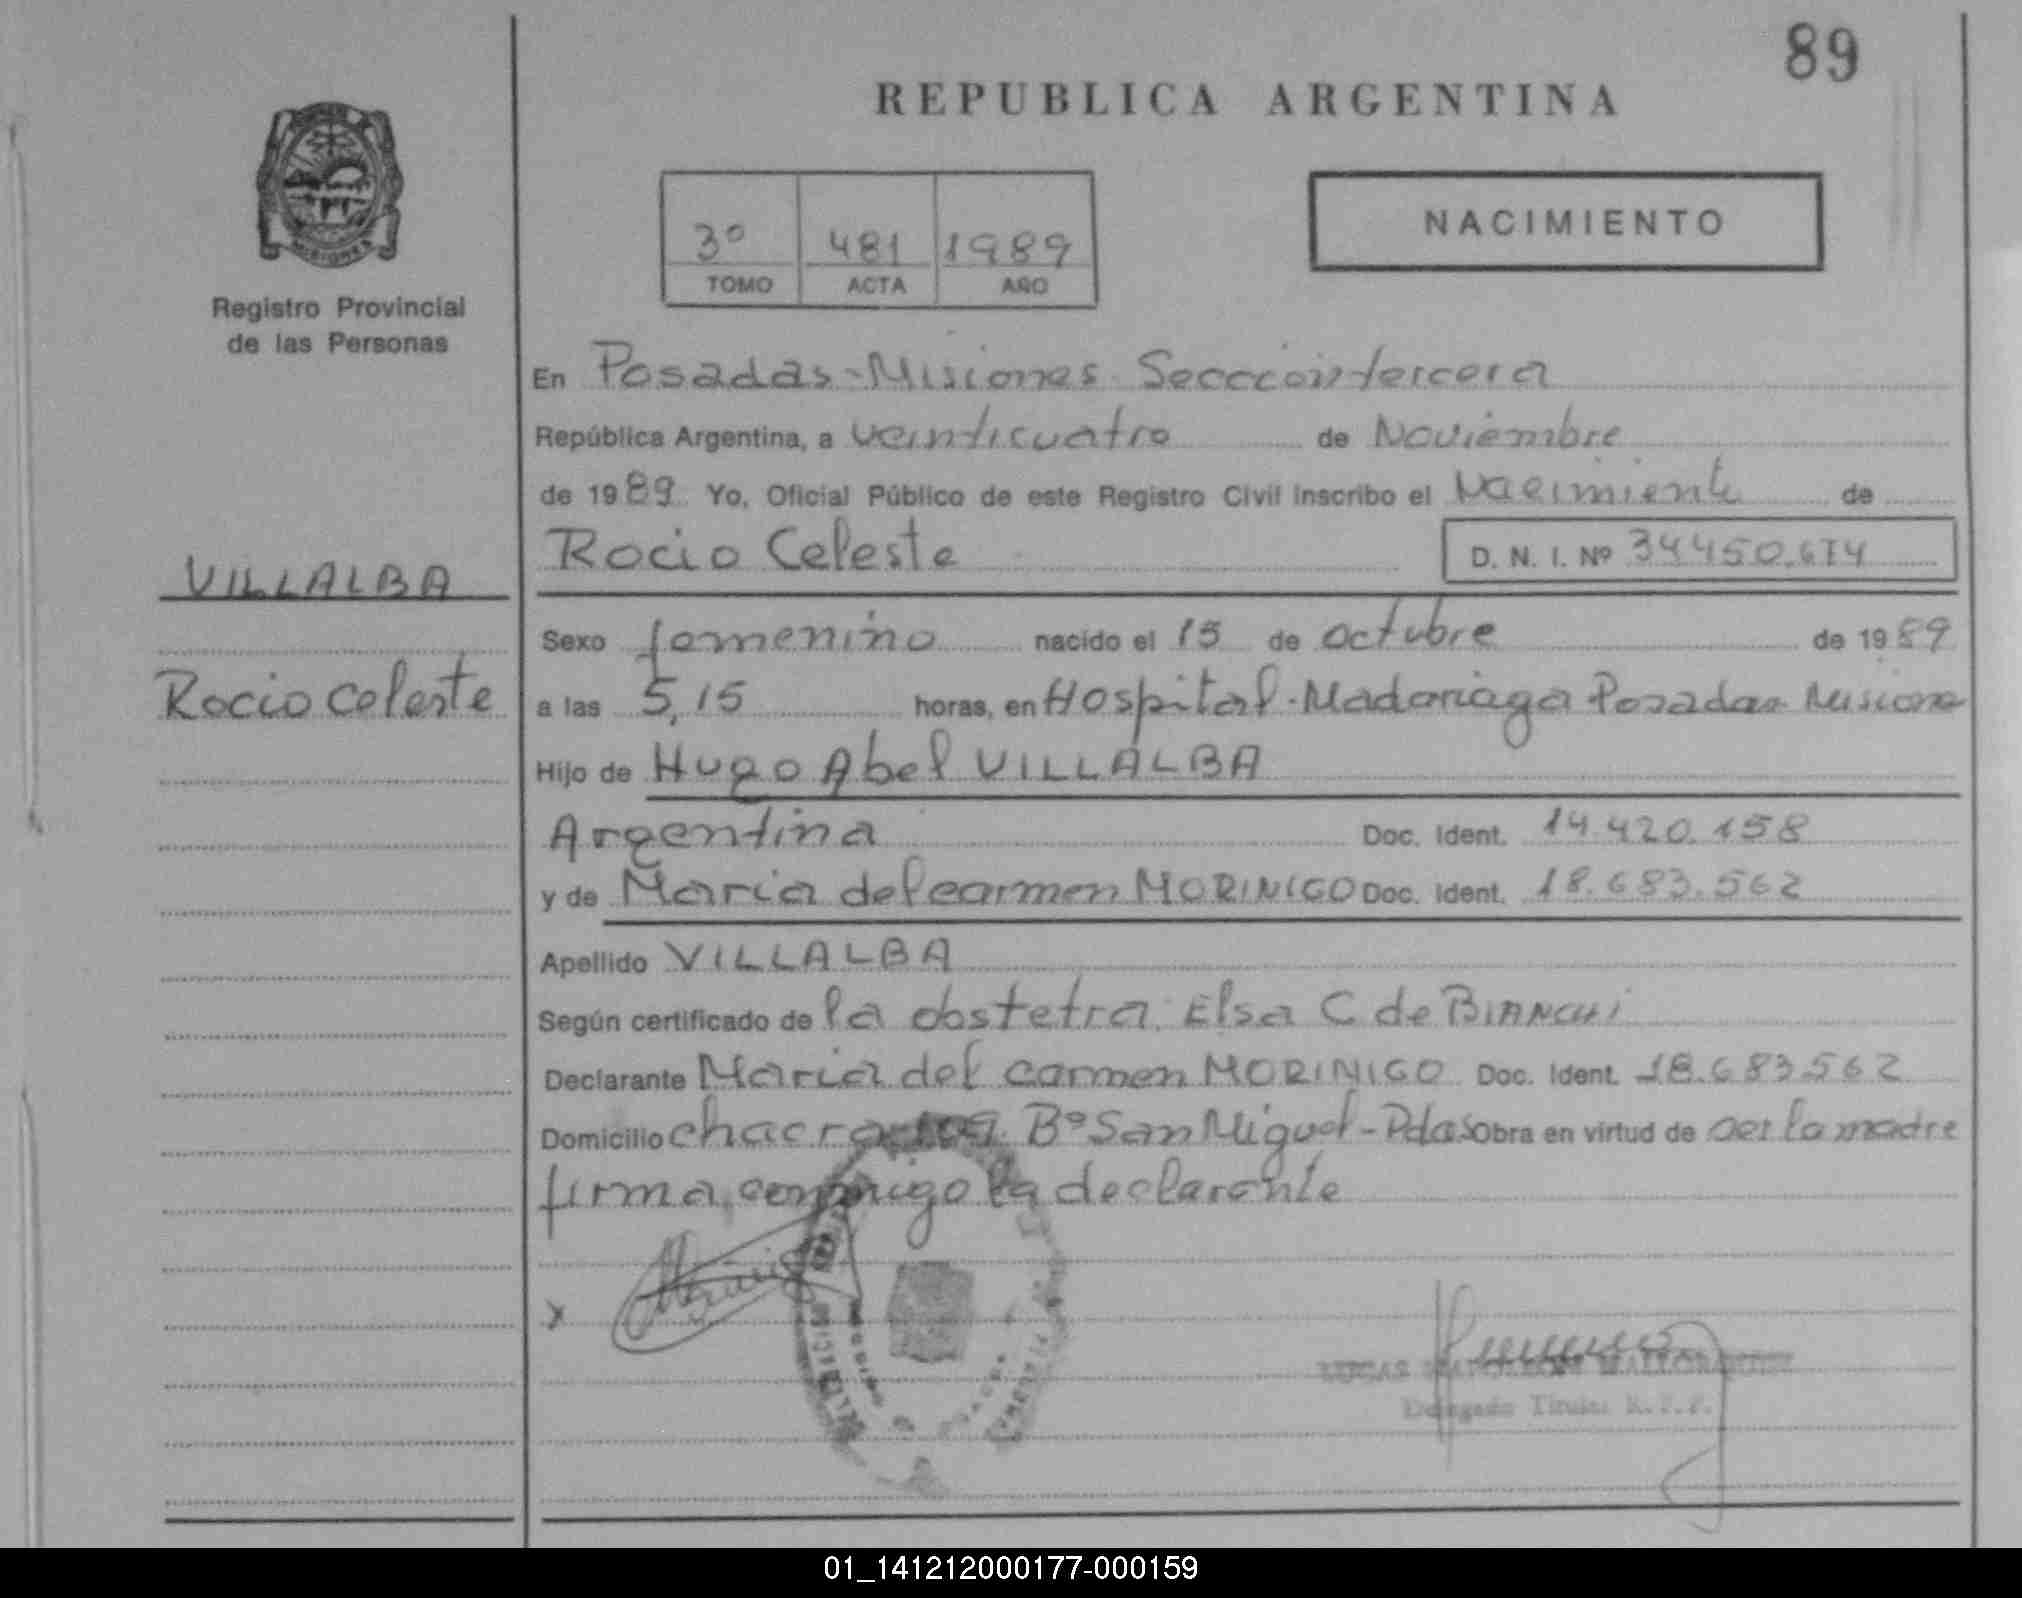 89
REPUBLICA ARGENTINA
MISIONES
Registro Provincial
de las Personas
3º 481 1989
TOMO ACTA AÑO
NACIMIENTO
En Posadas - Misiones. Seccción tercera
República Argentina, a veinticuatro de Noviembre
de 1989 Yo, Oficial Público de este Registro Civil inscribo el Nacimiento de
Rocio Celeste D. N. I. Nº 34450.674
VILLALBA
Rocio Celeste
Sexo femenino nacido el 15 de octubre de 1989
a las 5,15 horas, en Hospital - Madariaga Posadas Misiones
Hijo de Hugo Abel VILLALBA
Argentina Doc. Ident. 14.420.158
y de Maria del carmen MORINIGO Doc. Ident. 18.683.562
Apellido VILLALBA
Según certificado de la obstetra. Elsa C de BIANCHI
Declarante Maria del carmen MORINIGO Doc. Ident. 18.683.562
Domicilio chacra Bº San Miguel - Pdas Obra en virtud de ser la madre
firma conmigo la declarante
x
LUCAS
Delegado Titular R.P.P.
01_141212000177-000159